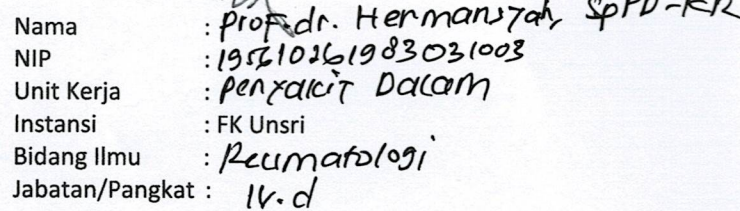 Nama : Prof.dr. Hermansyah, SpPD-KR
NIP : 195610261983031003
Unit Kerja : Penyakit Dalam
Instansi : FK Unsri
Bidang Ilmu : Reumatologi
Jabatan/Pangkat : IV.d